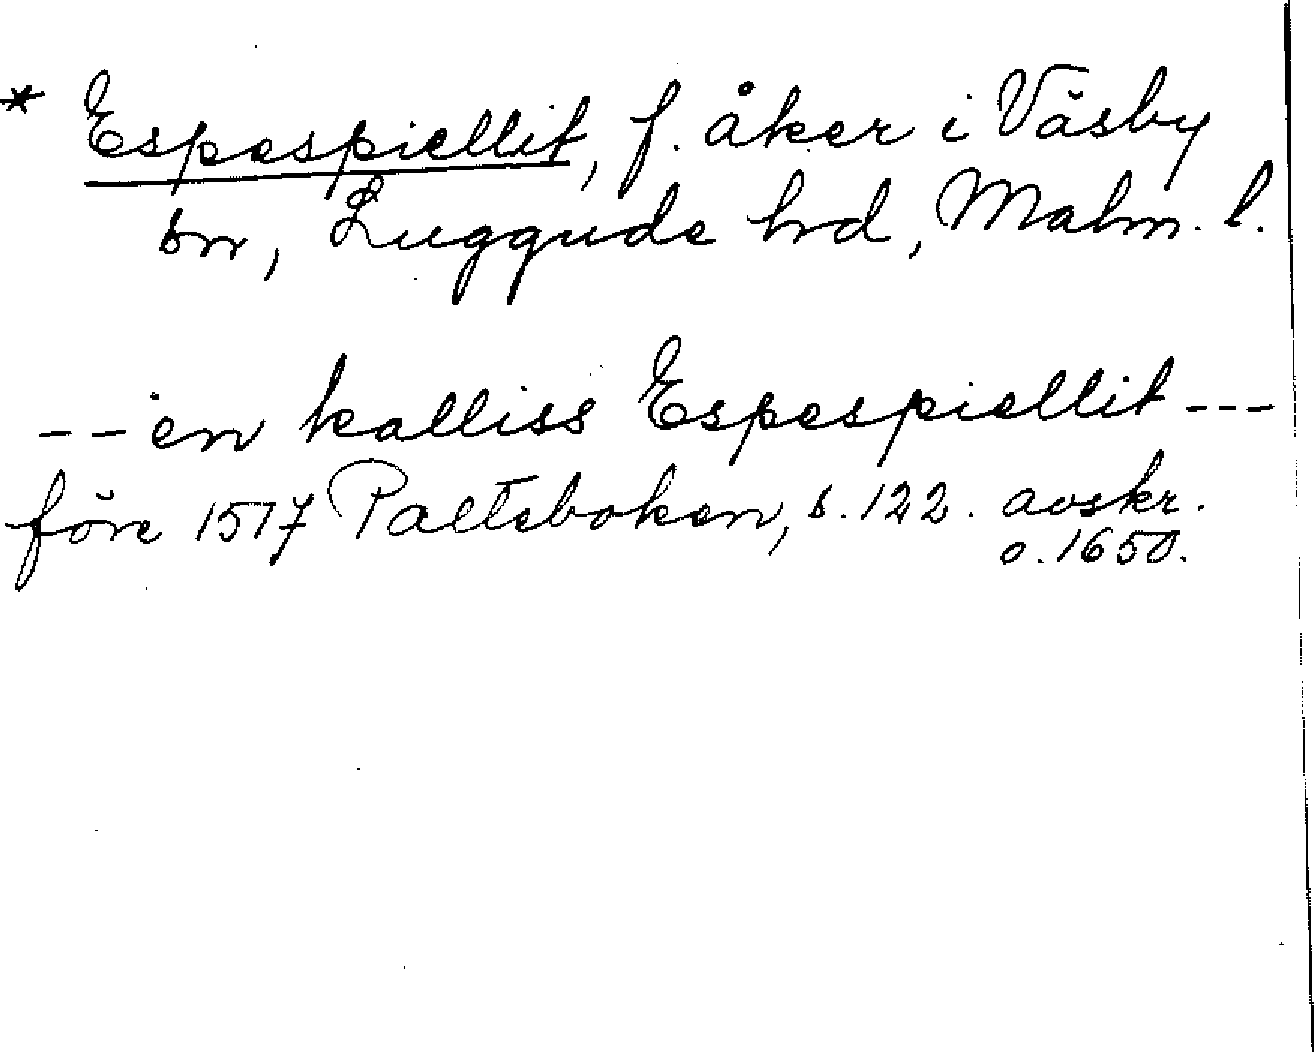 * Espespiellit, f. åker i Väsby
sn, Luggude hd, Malm. l.
-- en kalliss Espespiellit ---
före 1517 Palteboken, s. 122. avskr.
o. 1650.